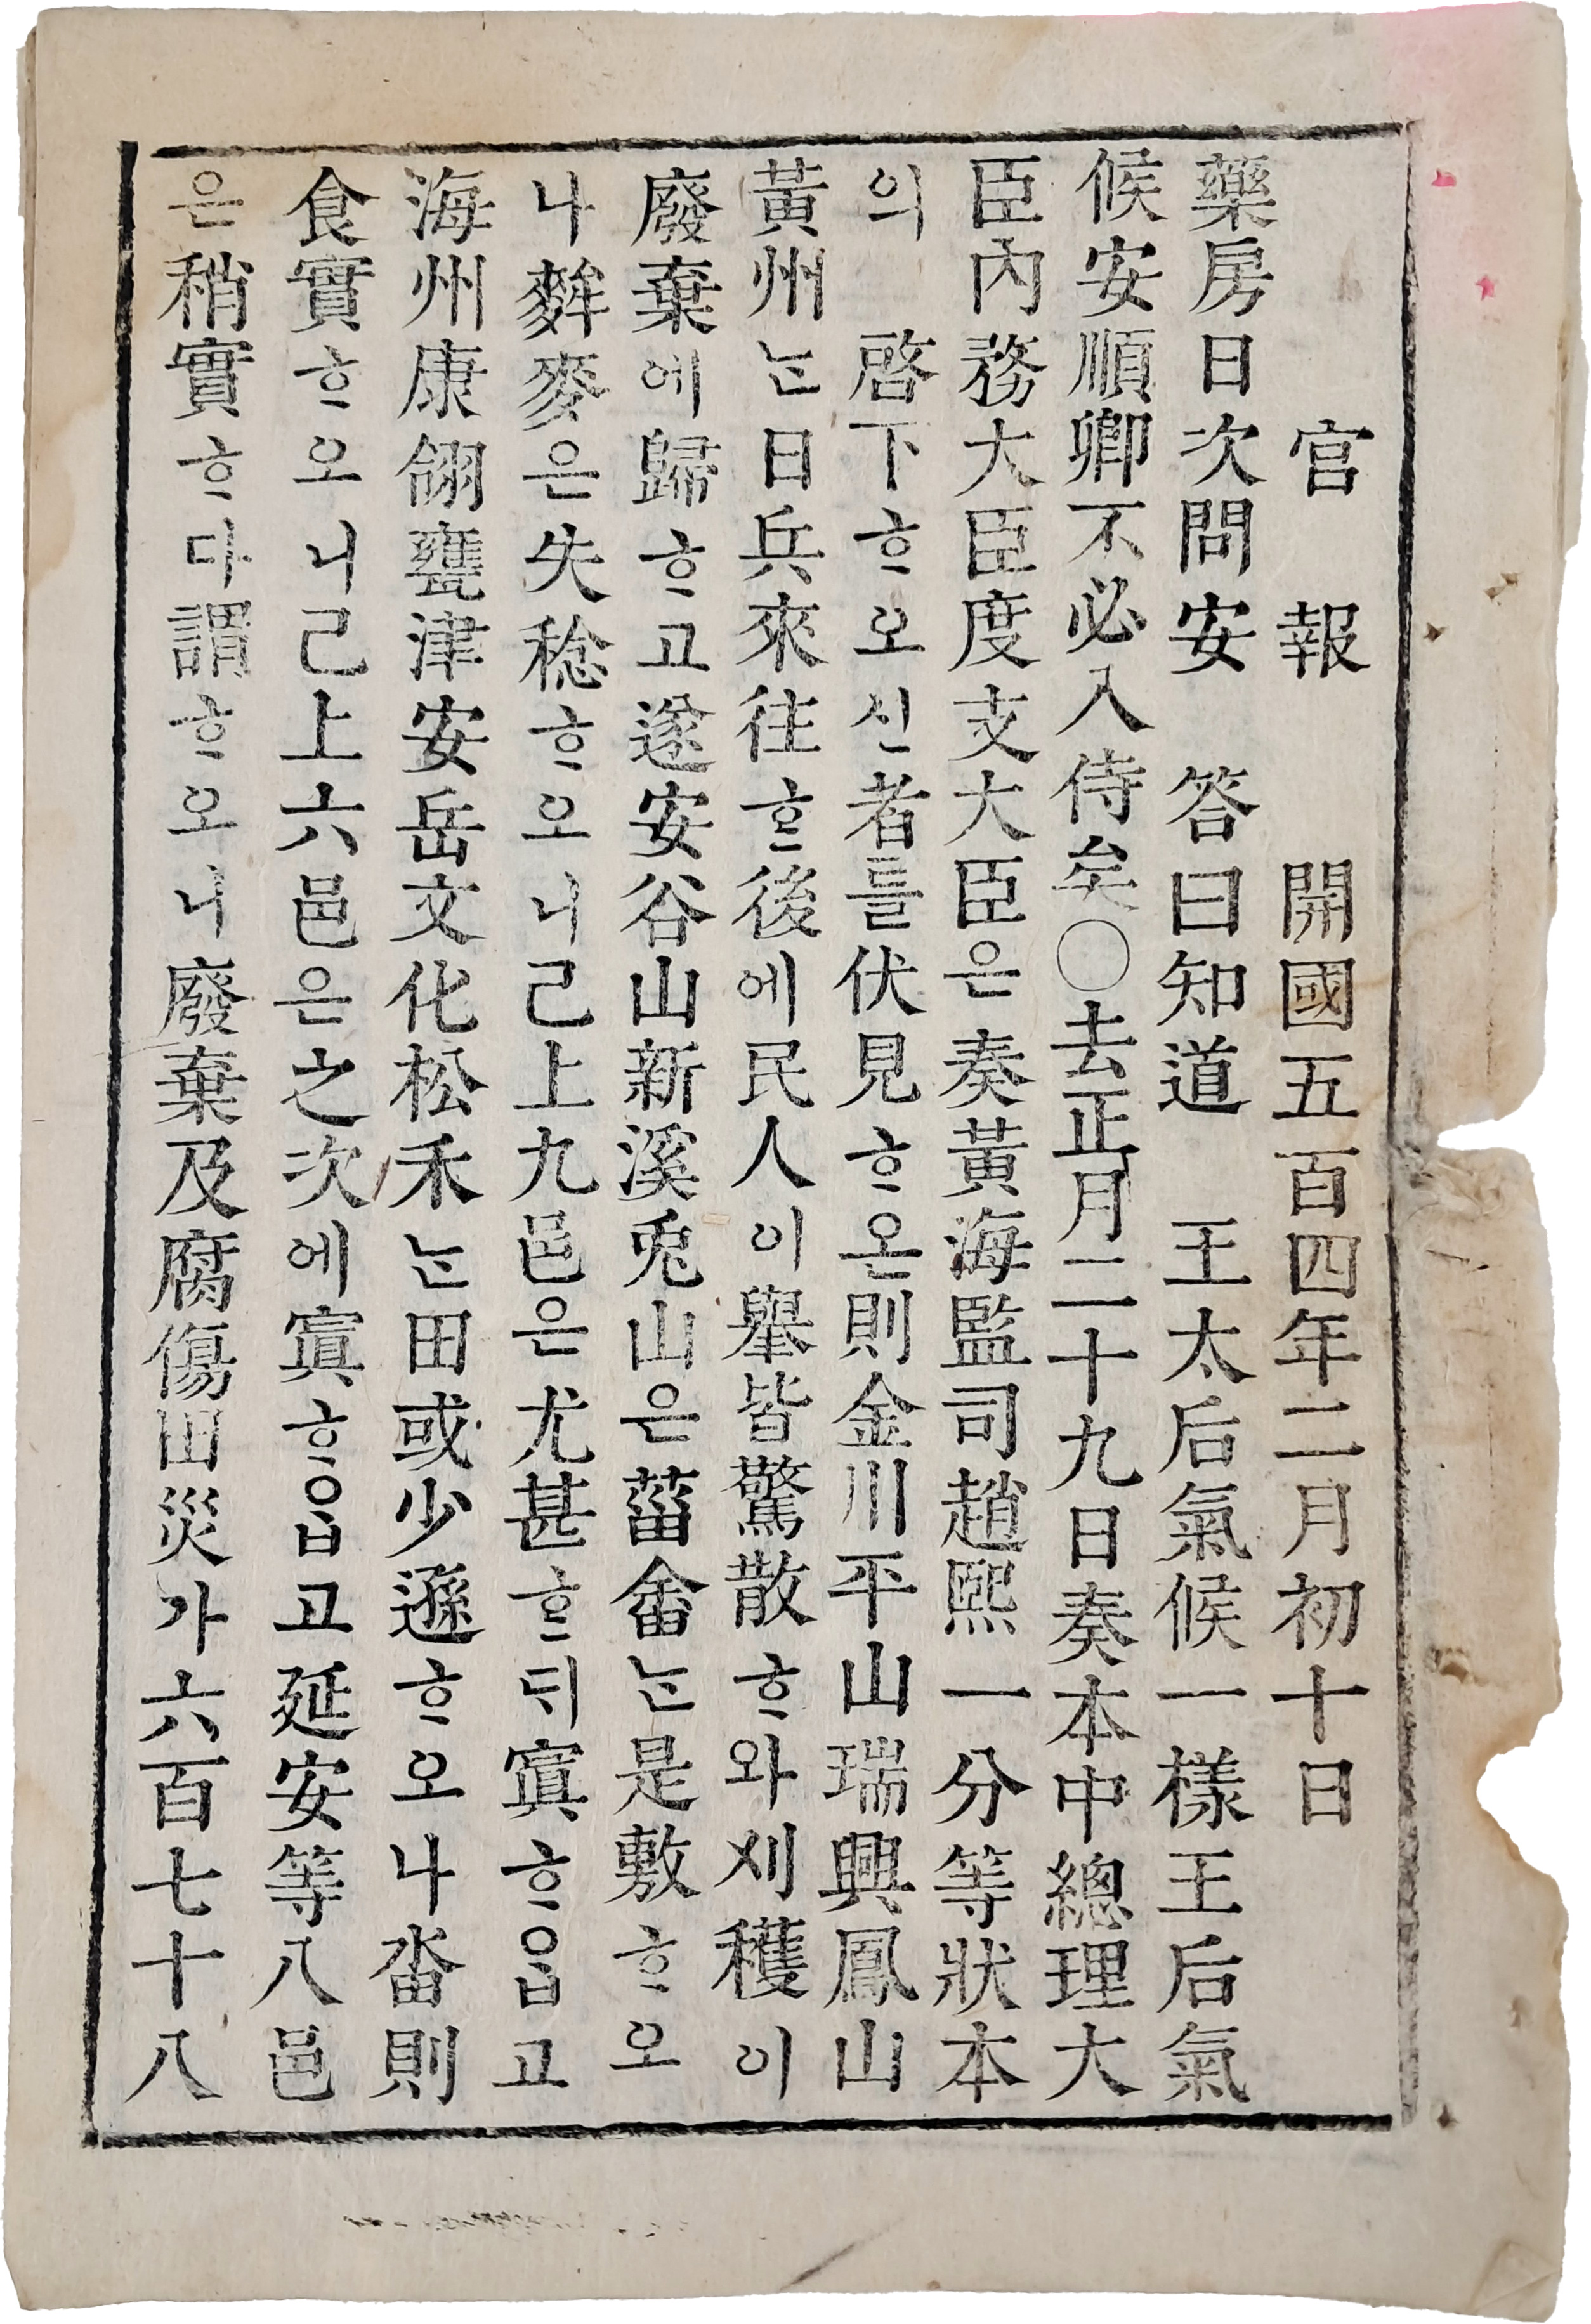 官報 開國五百四年二月初十日
藥房日次問安 答曰知道 王太后氣候一樣王后氣
候安順卿不必入侍矣○去正月二十九日奏本中總理大
臣內務大臣度支大臣은奏黃海監司趙熙一分等狀本
의 啓下ᄒᆞ오신者를伏見ᄒᆞ온則金川平山瑞興鳳山
黃州ᄂᆞᆫ日兵來往ᄒᆞᆫ後에民人이擧皆驚散ᄒᆞ와刈穫이
廢棄에歸ᄒᆞ고遂安谷山新溪兎山은菑畬ᄂᆞᆫ是敷ᄒᆞ오
나麰麥은失稔ᄒᆞ오니己上九邑은尤甚ᄒᆞᆫᄃᆡ寘ᄒᆞ읍고
海州康翎甕津安岳文化松禾ᄂᆞᆫ田或少遜ᄒᆞ오나畓則
食實ᄒᆞ오니己上六邑은之次에寘ᄒᆞ읍고延安等八邑
은稍實ᄒᆞ다謂ᄒᆞ오니廢棄及腐傷田災가六百七十八